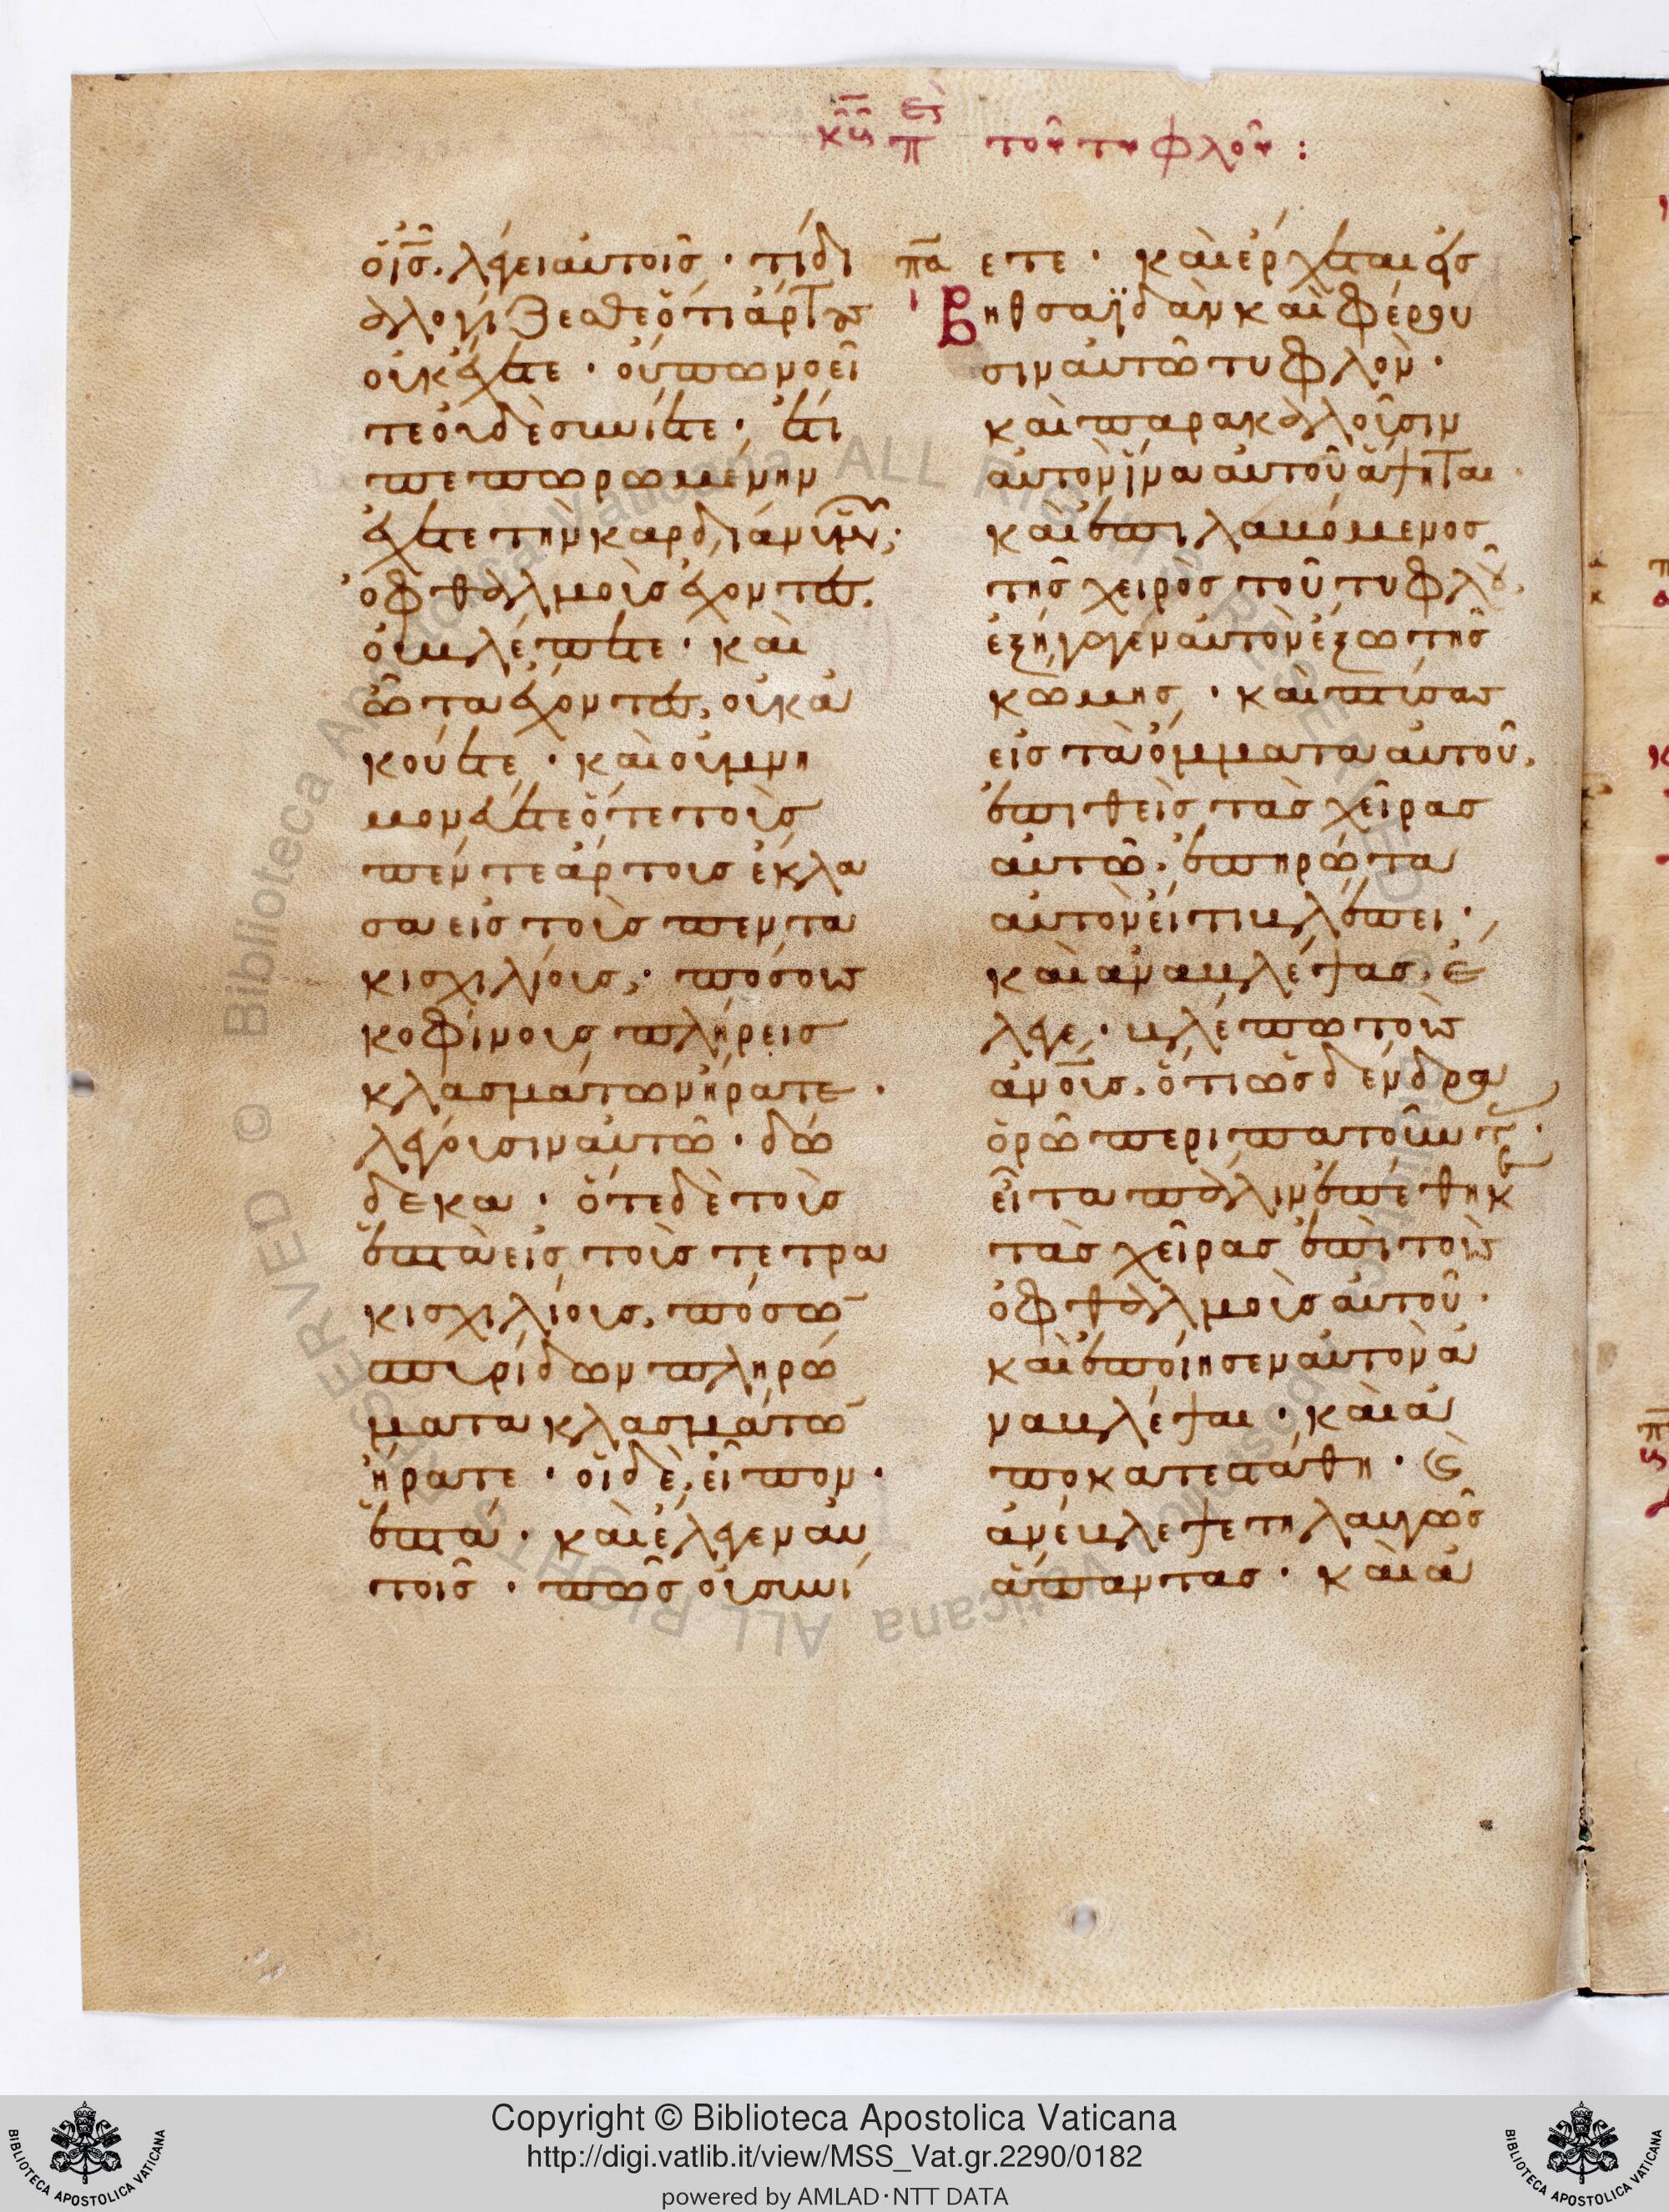 τοῦ τυφλοῦ :
ὁ ι̅ς̅. λέγει αὐτοῖς · τί δι
αλογίζεσθε ὅτι ἄρτους
οὐκ ἔχετε · οὔπω νοεῖ
τε οὐδὲ συνίετε · ἔτι
πεπωρωμένην
ἔχετε τὴν καρδίαν ὑμῶν;
ὀφθαλμοὺς ἔχοντες.
οὐ βλέπετε · καὶ
ὦτα ἔχοντες, οὐκ ἀ
κούετε · καὶ οὐ μνη
μονεύετε ὅτε τοὺς
πέντε ἄρτους ἔκλα
σα εἰς τοὺς πεντα
κισχιλίους · πόσους
κοφίνους πλήρεις
κλασμάτων ἤρατε ·
λέγουσιν αὐτῶ · δώ
δεκα · ὅτε δὲ τοὺς
ἑπτὰ εἰς τοὺς τετρα
κισχιλίους, πόσω̅
σπυρίδων πληρώ
ματα κλασμάτω̅
ἤρατε · οἱ δὲ εἶπον ·
ἑπτά · καὶ ἔλεγεν αὐ
τοῖς · πῶς οὐ συνί
ετε · καὶ ἔρχεται εἰς
Βηθσαϊδὰν καὶ φέρου
σιν αὐτῶ τυφλὸν ·
καὶ παρακαλοῦσιν
αὐτὸν ἵνα αὐτοῦ ἅψηται ·
καὶ ἐπιλαβόμενος
τῆς χειρὸς τοῦ τυφλοῦ,
ἐξήγαγεν αὐτὸν ἔξω τῆς
κώμης · καὶ πτύσας
εἰς τὰ ὄμματα αὐτοῦ,
ἐπιθεὶς τὰς χεῖρας
αὐτῶ, ἐπηρώτα
αὐτὸν εἴ τι βλέπει ·
καὶ ἀναβλέψας, ἔ
λεγε · βλέπω τοὺς
ἀν̅ο̅υς, ὅτι ὡς δένδρα
ὁρῶ περιπατοῦντ ·
εἶτα πάλιν ἐπέθηκ
τὰς χεῖρας ἐπὶ τοὺς
ὀφθαλμοὺς αὐτοῦ ·
καὶ ἐποίησεν αὐτὸν ἀ
ναβλέψαι · καὶ ἀ
ποκατεστάθη · καὶ
ἀνέβλεψε τηλαυγῶς
ἅπαντας · καὶ ἀ
Copyright © Biblioteca Apostolica Vaticana
http://digi.vatlib.it/view/MSS_Vat.gr.2290/0182
powered by AMLAD·NTT DATA
BIBLIOTECA APOSTOLICA VATICANA
BIBLIOTECA APOSTOLICA VATICANA